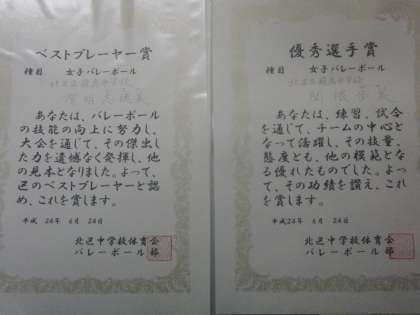 ベストプレーヤー賞
種目 女子バレーボール
あなたは、バレーボール
の技能の向上に努力し、
大会を通じて、その傑出し
た力を遺憾なく発揮し、他
の見本となりました。よって、
区のベストプレーヤーと認
め、これを賞します。
平成 24年 6月 24日
北区中学校体育会
バレーボール部
優秀選手賞
種目 女子バレーボール
あなたは、練習、試合
を通じて、チームの中心と
なって活躍し、その技量、
態度とも、他の模範とな
る優れたものでした。よっ
て、その功績を讃え、これ
を賞します。
平成24年 6月 24日
北区中学校体育会
バレーボール部